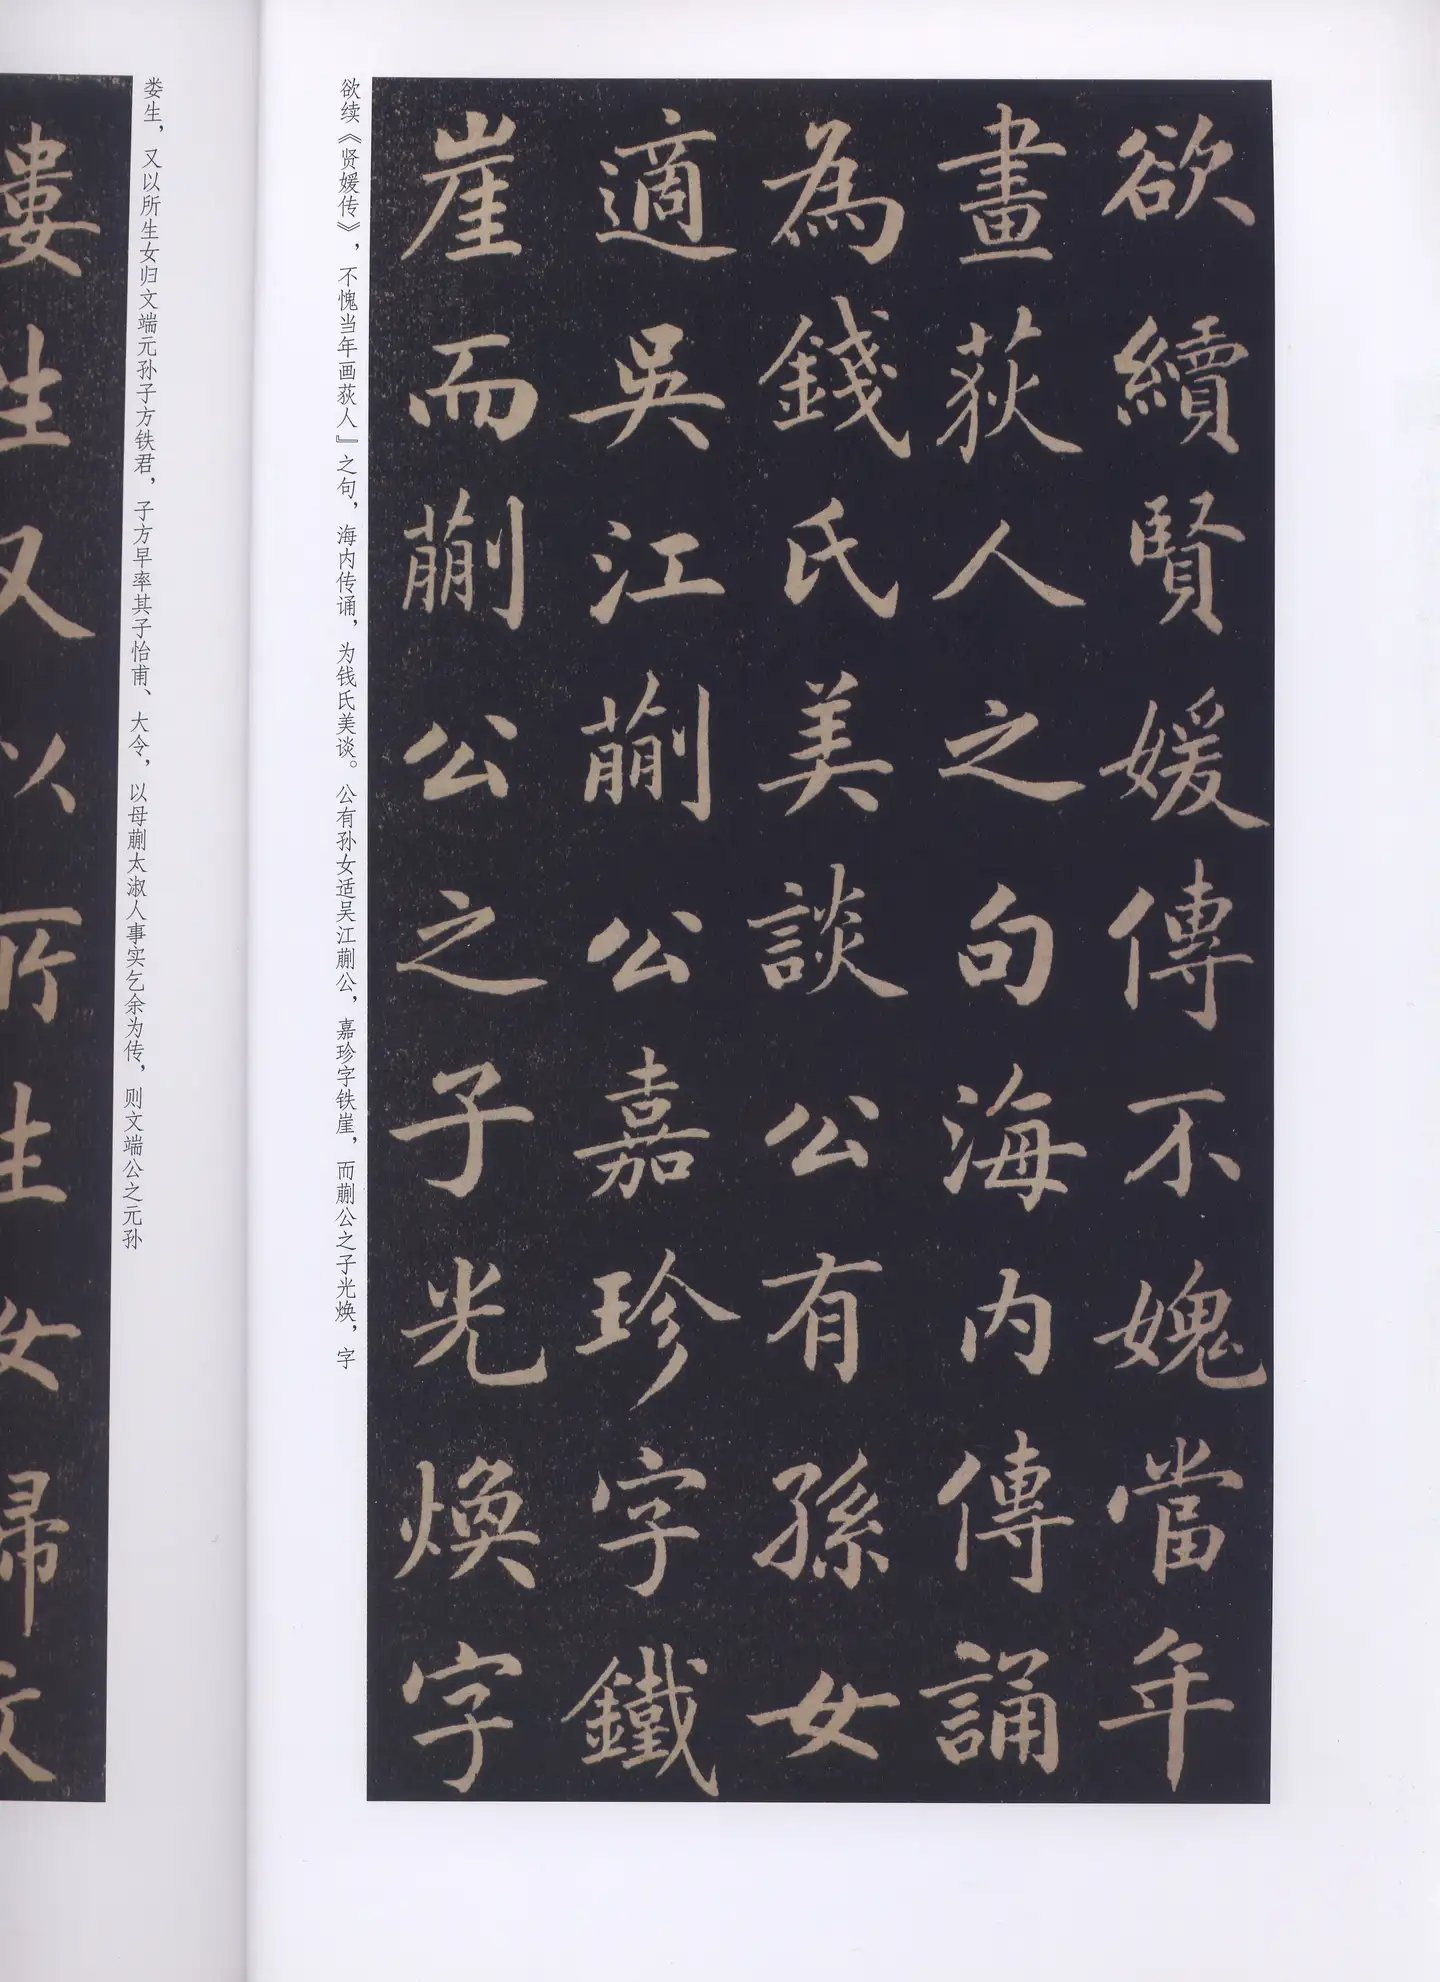 欲續賢媛傳不媿當年
畫荻人之句海内傳誦
為錢氏美談公有孫女
適吳江蒯公嘉珍字鐵
崖而蒯公之子光煥字
欲续《贤媛传》，不愧当年画荻人』之句，海内传诵，为钱氏美谈。公有孙女适吴江蒯公，嘉珍字铁崖，而蒯公之子光焕，字
娄生，又以所生女归文端元孙子方铁君，子方早率其子怡甫、大令，以母蒯太淑人事实乞余为传，则文端公之元孙
婁生又以所生女歸文